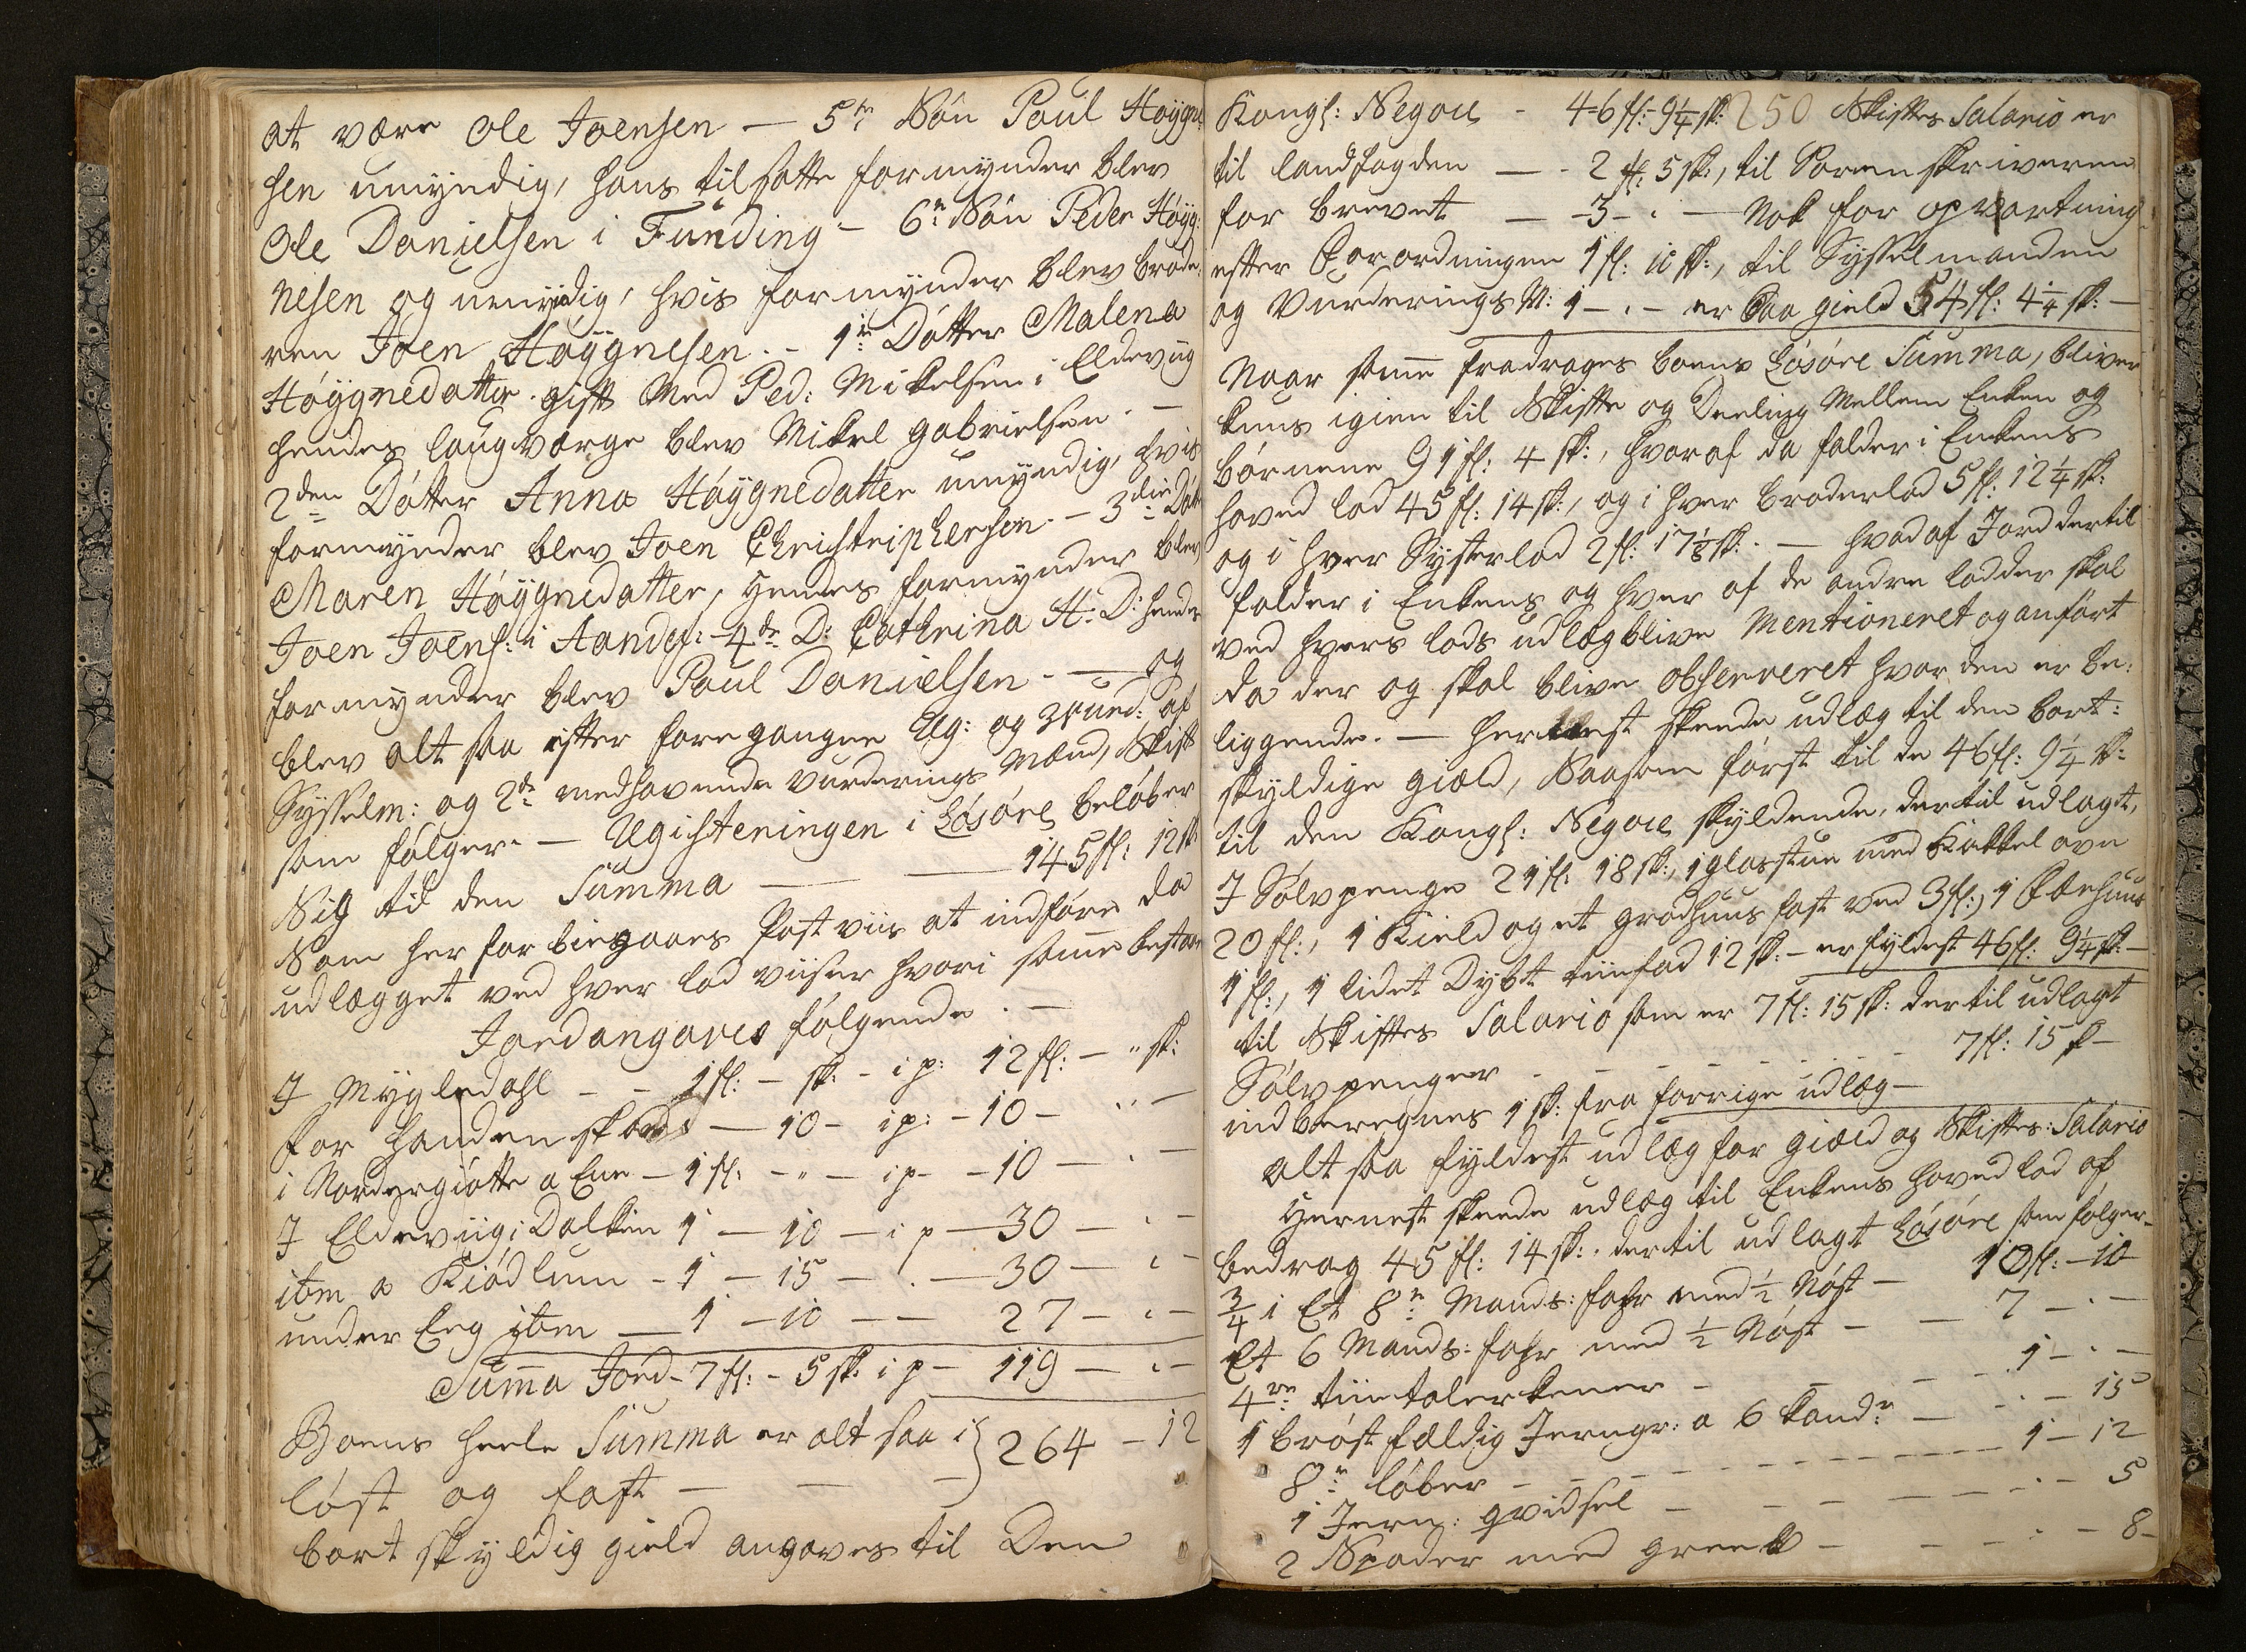 at være Ole Joensen — 5te Søn Poul Høygne
sen umyndig, hans tilsatte formynder blev
Ole Danielsen i Funding – 6te Søn Peder Høyg:
nesen og umyndig, hvis formynder blev brode
ren Joen Høygnesen. – 1te Dotter Malena
Høygnedatter gift med Ped: Mikelsen i Eldeviig
hendes laugværge blev Mikel gabrielsen. —
2den Dotter Anna Høygnedatter umyndig, hvis
formynder blev Joen Christophersen. – 3die Dot
Maren Høygnedatter, hendes formynder blev
Joen Joens: i Andef: – 4de D: Cathrina H: D: hendes
formynder blev Poul Danielsen. — og
blev alt saa efter foregangne Reg: og Vurd: af
Sysselm: og 2de medhavende vurderings Mænd, Skift
som følger. — Registeringen i Løsøre beløber
Sig til den Summa — — 145 fl: 12 sk:
Som her forbiegaaes Post viis at indføre da
udlægget ved hver lod viiser hvori samme bestaar
Jord angaves følgende. —
J Mygledahl – – 1 fl: – sk: – i p: 12 fl: – " sk:
for handen — 10 – i p: – 10 – " –
i Nordergiøtte a Ene – 1 fl: – " – i p – – 10 – . –
J Eldeviig i Dalken 1 – 10 – i p – 30 – . –
itm a Kiødlum – 1 – 15 – . – 30 – . –
under Eeg itm – 1 – 10 – – 27 – . –
Summa Jord – 7 fl: – 5 sk: i p – 119 – . –
Boens heele Summa er alt saa i } 264 – 12
løst og fast — — —
bort skyldig gield angaves til Den
Kongl: Negoce – 46 fl: 9¼ sk: 250 Skiftes Salario er
til landfogden — – 2 fl: 5 sk:, til Sorenskriveren
for brevet — – 3 – . — Nok for opvartning
efter Forordningen 1 fl: 10 sk:, til Sysselmanden
og Vurderings M: 1 – . – er saa gield 54 fl: 4¼ sk: —
Naar samme fradrages boens Løsøre Summa, bliver
kuns igien til Skifte og Deeling Mellem Enken og
børnene 91 fl: 4 sk:, hvoraf da falder i Enkens
hoved lod 45 fl: 14 sk:, og i hver broderlod 5 fl: 12¼ sk:
og i hver Systerlod 2 fl: 17⅛ sk: — hvad af Jord dertil
falder i Enkens og hver af de andre lodder skal
ved hvers lods udlæg blive Mentioneret og anført
da der og skal blive observeret hvor den er be:
liggende. — hernest skeede udlæg til den bort:
skyldige giæld, Saasom først til de 46 fl: 9¼ sk:
til den Kongl: Negoce skyldende, dertil udlagt,
J Sølvpenge 21 fl: 18 sk:, 1 glasstue med Kakkelovn
20 fl:, 1 Kield og et grødhuus fast ved 3 fl:, 1 Fæehuus
1 fl:, 1 lidet Dybt tiinfad 12 sk: – er fyldest 46 fl: 9¼ sk: –
til Skiftes Salario som er 7 fl: 15 sk: dertil udlagt
Sølvpenger – – – – – – – 7 fl: 15 sk –
indberegnes 1 sk: fra forrige udlæg –
alt saa fyldest udlæg for giæld og Skiftes: Salario
Hernest skeede udlæg til Enkens hoved lod af
bedrag 45 fl: 14 sk: dertil udlagt Løsøre som følger –
¾ i Et 8te Mands: fahr med ½ Nøst – 10 fl: – 10
Et 6 Mands: fahr med ½ Nøst – – 7 – . –
4re tiintalerkener – – – 1 – . –
1 brøstfældig Jerngr: a 6 kand: – . – 15
8te løber – – – – – – – 1 – 12
1 Jern: gvidsel – – – – – . – 5
2 Spader med greeb – – – . – 8 –